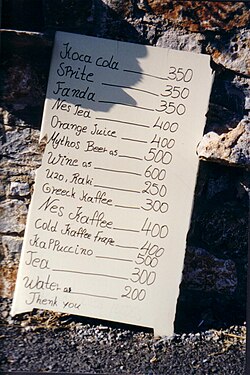 Koca cola 350
Sprite 350
Fanda 350
Nes Tea 400
Orange Juice 400
Mythos Beer as 500
Wine as 600
Uzo, Raki 250
Greeck Kaffee 300
Nes Kaffee 400
Cold Kaffee Frape 400
Kappuccino 500
Tea 300
Water as 200
Thank you